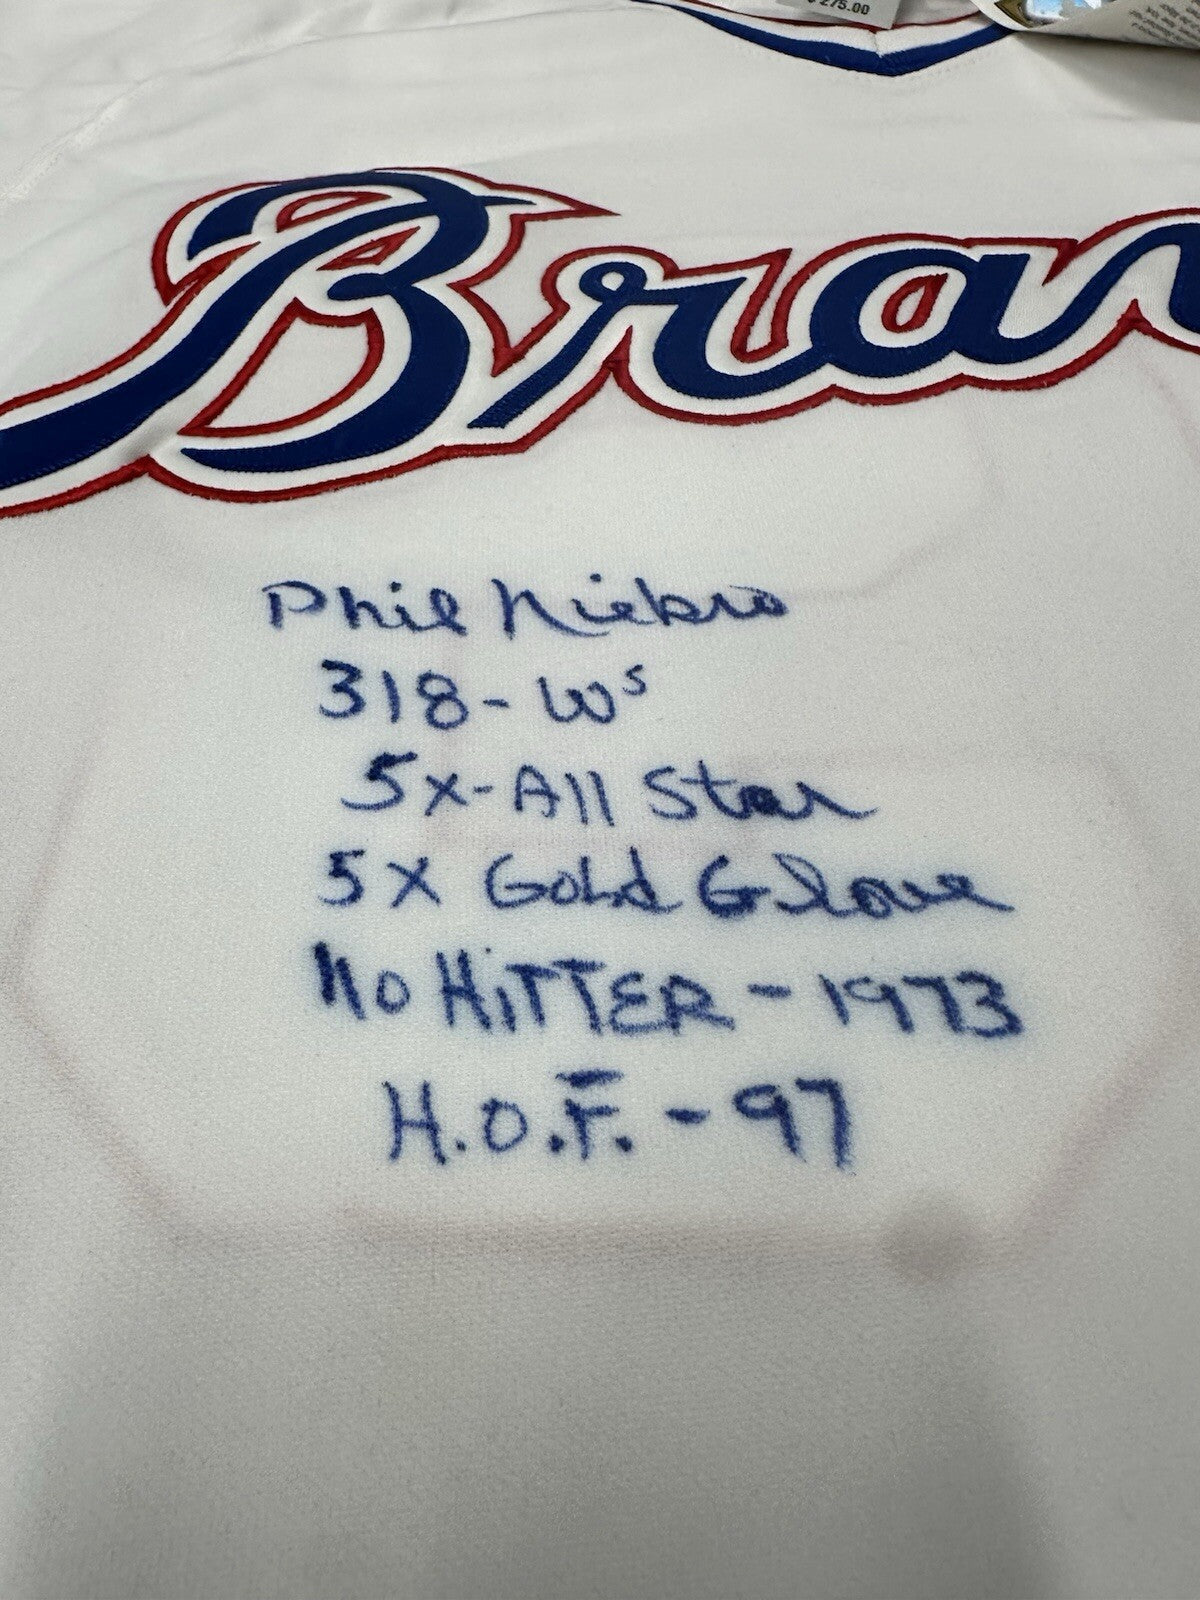 $275.00
Brav
Phil Niekro
318-Ws
5x-All Star
5X Gold Glove
No HiTTER-1973
H.O.F.-97